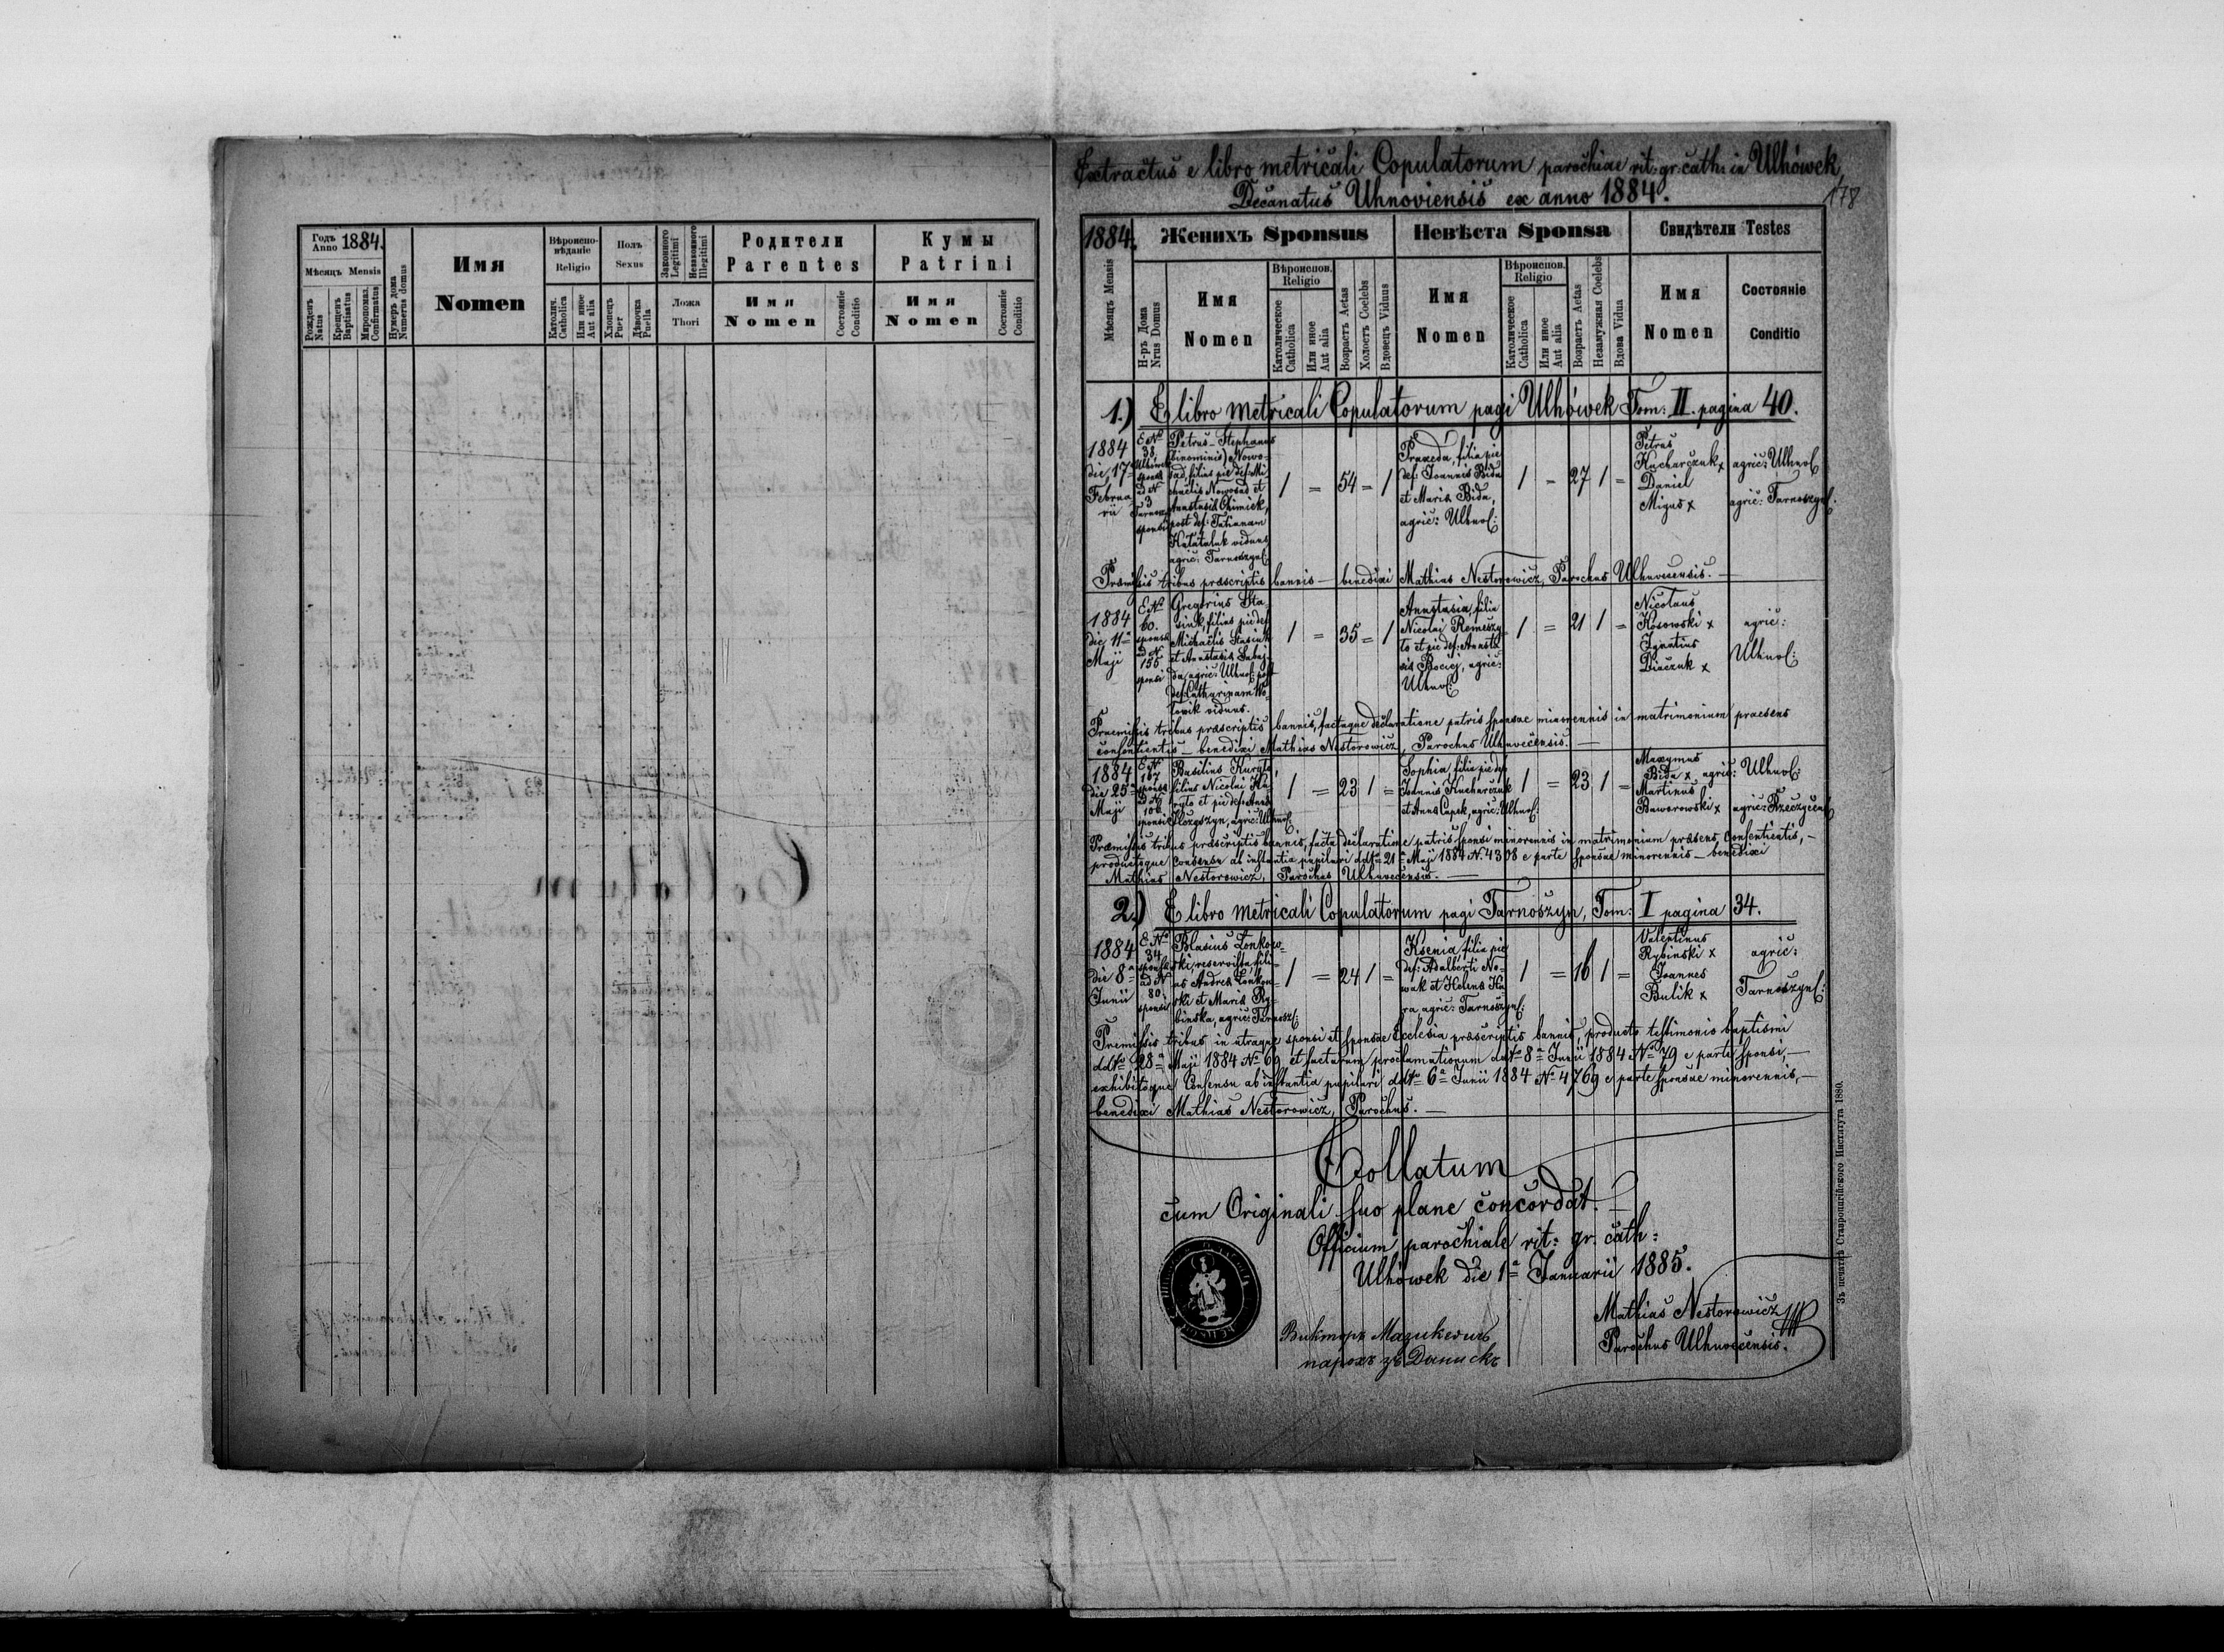 Годъ Anno 1884.
Мѣсяцъ Mensis
Рожденъ Natus
Крещенъ Baptisatus
Миропомаз. Confirmatus
Нумеръ дома Numerus domus
Имя
Nomen
Вѣроиспо-
вѣданіе
Religio
Католич. Catholica
Или иное Aut alia
Полъ
Sexus
Хлопецъ Puer
Дѣвочка Puella
Законного Legitimi
Незаконного Illegitimi
Ложа
Thori
Родители
Parentes
Имя
Nomen
Состояніе Conditio
Кумы
Patrini
Имя
Nomen
Состояніе Conditio
Extractus e libro metricali Copulatorum parochiae rit: gr: cath: in Ulhówek,
Decanatus Uhnoviensis ex anno 1884.
178
1884.
Женихъ Sponsus
Невѣста Sponsa
Свидѣтели Testes
Мѣсяцъ Mensis
Н-ръ Дома Nrus Domus
Имя
Nomen
Вѣроиспов.
Religio
Католическое Catholica
Или иное Aut alia
Возрастъ Aetas
Холостъ Coelebs
Вдовецъ Viduus
Имя
Nomen
Вѣроиспов.
Religio
Католическое Catholica
Или иное Aut alia
Возрастъ Aetas
Незамужная Coelebs
Вдова Vidua
Имя
Nomen
Состояніе
Conditio
1.) E libro metricali Copulatorum pagi Ulhówek Tom: II. pagina 40.
1884
die 17a
Februa
rii
E No
38.
Ulhówek
sponsae
ad N
3
Tarnosz
sponsi
Petrus-Stephanus
(binominis) Nowo-
sad, filius pie def: Mi
chaelis Nowosad et
Anastasia Chimiek,
post def: Tatianam
viduus
agric: Tarnoszyn:
1 = 54 = 1
Praxeda, filia pie
def: Joannis Bida
et Maria Bida,
agric: Ulhov:
1 = 27 1 =
Petrus
Kucharczuk x
Daniel
Migus x
agric: Ulhov:
agric: Tarnoszyn:
Praemissis tribus praescriptis bannis — benedixi Mathias Nestorowicz, Parochus Ulhuvecensis. —
1884
die 11a
Maji
E No
60.
sponsae
ad N
155
sponsi
Gregorius Sta
siuk, filius pie def:
Michaelis Stasiuk
et Anastasia
agric: Ulhov: post
def: Catharinam Wo-
towik viduus.
1 = 35 = 1
Anastasia, filia
Nicolai Remeszy-
lo et pie def: Anasta
sia Bociej, agric:
Ulhov:
1 = 21 1 =
Nicolaus
Kosowski x
Ignatius
Diaczuk x
agric:
Ulhov:
Praemissis tribus praescriptis bannis, factaque declaratione patris sponsae minorennis in matrimonium praesens
consentientis — benedixi Mathias Nestorowicz, Parochus Ulhuvecensis. —
1884
die 25a
Maji
E No
167
sponsae
ad N
106
sponsi
Basilius Kuryło,
filius Nicolai Ku
ryło et pie def: Anna
agric: Ulhov:
1 = 23 1 =
Sophia filia pie def:
Joannis Kucharczuk
et Anna Capek, agric: Ulhov:
1 = 23 1 =
Maxymus
Bida x agric: Ulhov:
Martinus
Baworowski x agric: Rzeczycens
Praemissis tribus praescriptis bannis, facta declaratione patris sponsi minorennis in matrimonium praesens consentientis, —
productoque consensu ab instantia pupilari ddto 21a Maji 1884 N. 4308 e parte sponsae minorennis — benedixi
Mathias Nestorowicz, Parochus Ulhuvecensis. —
2.) E libro metricali Copulatorum pagi Tarnoszyn, Tom: I pagina 34.
1884
die 8a
Junii
E No
34
sponsae
ad N
80
sponsi
Blasius Łonkow-
ski, reservista, fili-
us Andrea Łonkow-
ski et Maria Ry-
binska, agric: Tarnosz:
1 = 24 1 =
Ksenia, filia pie
def: Adalberti No-
wak et Helena Ha
ra agric: Tarnoszyn:
1 = 16 1 =
Valentinus
Rybinski x
Joannes
Bulik x
agric:
Tarnoszyn:
Premissis tribus in utraque sponsi et sponsae Ecclesia praescriptis bannis, producto testimonio baptismi
ddto 28a Maji 1884 No 69 et factarum proclamationum ddto 8a Junii 1884 No 79 e parte sponsi, —
exhibitoque Consensu ab instantia pupilari ddto 6a Junii 1884 No 4769 e parte sponsae minorennis, —
benedixi Mathias Nestorowicz, Parochus. —
Collatum
cum Originali suo plane concordat. —
Officium parochiale rit: gr: cath:
Ulhówek die 1a Januarii 1885.
Mathias Nestorowicz
Parochus Ulhuvecensis.
Викторъ Мазикевичъ
парохъ
Зъ печатнѣ Ставропигійского Института 1880.